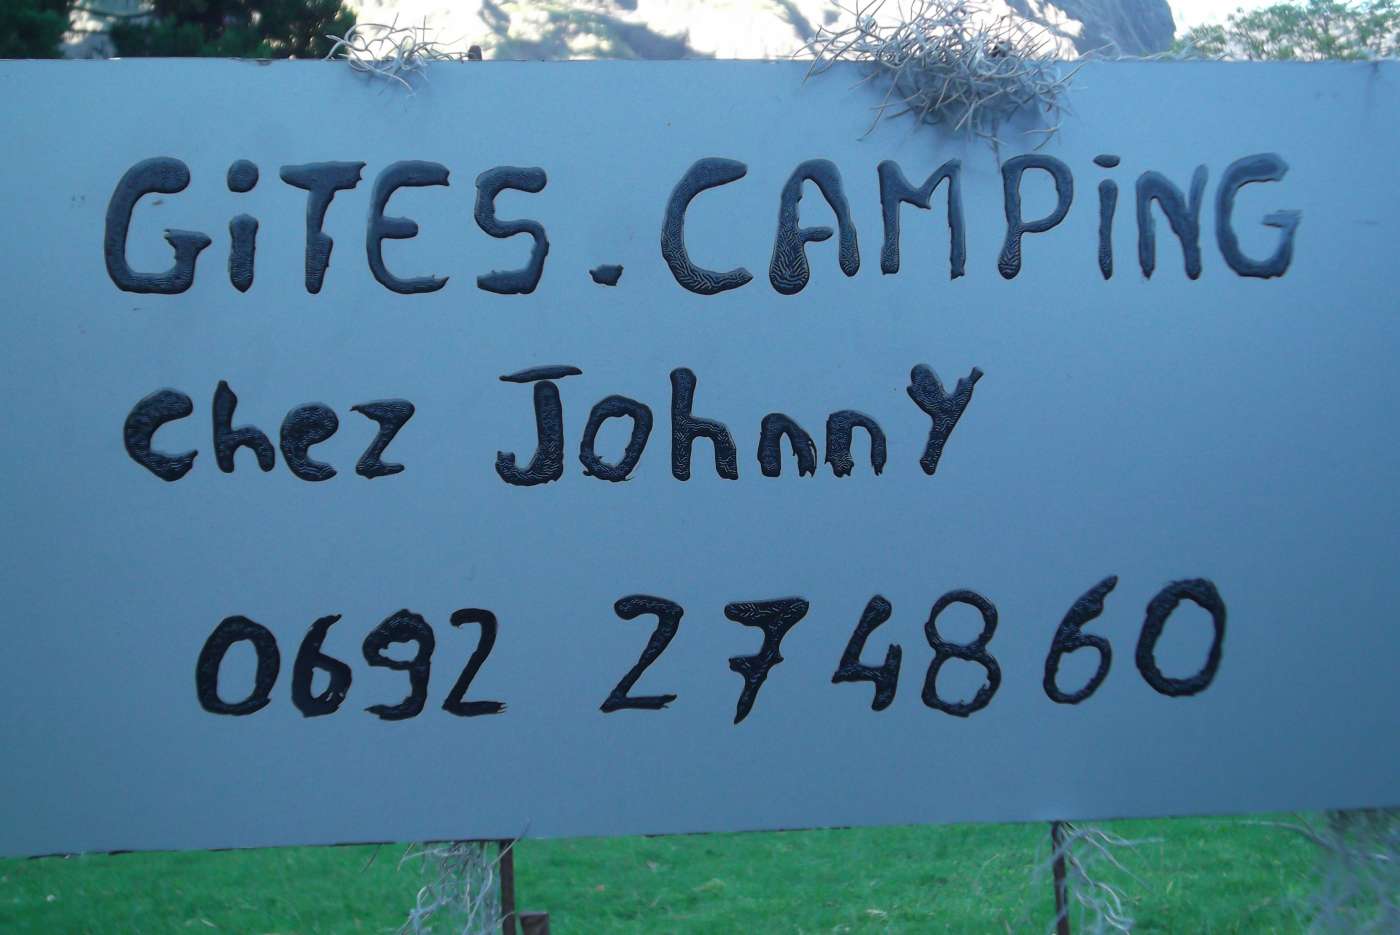 GiTES.CAMPiNG
chez JohnnY
0692 274860